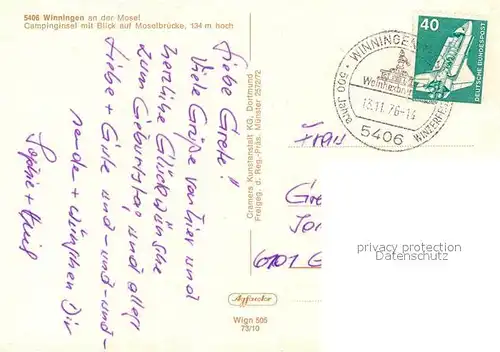 5406 Winningen an der Mosel
Campinginsel mit Blick auf Moselbrücke, 134 m hoch
Liebe Grete!
Viele Grüße von hier und
herzliche Glückwünsche
zum Geburtstag und alles
Liebe + Gute und-und-und-
sende + wünschen Dir
Sophie +
Cramers Kunstanstalt KG, Dortmund
Freigeg. d. Reg.-Präs. Münster 2572/72
Wign 505
73/10
WINNINGEN
500 JAHRE
13.11.76-14
5406
40
DEUTSCHE BUNDESPOST
Frau
Gre
6101
privacy protection
Datenschutz